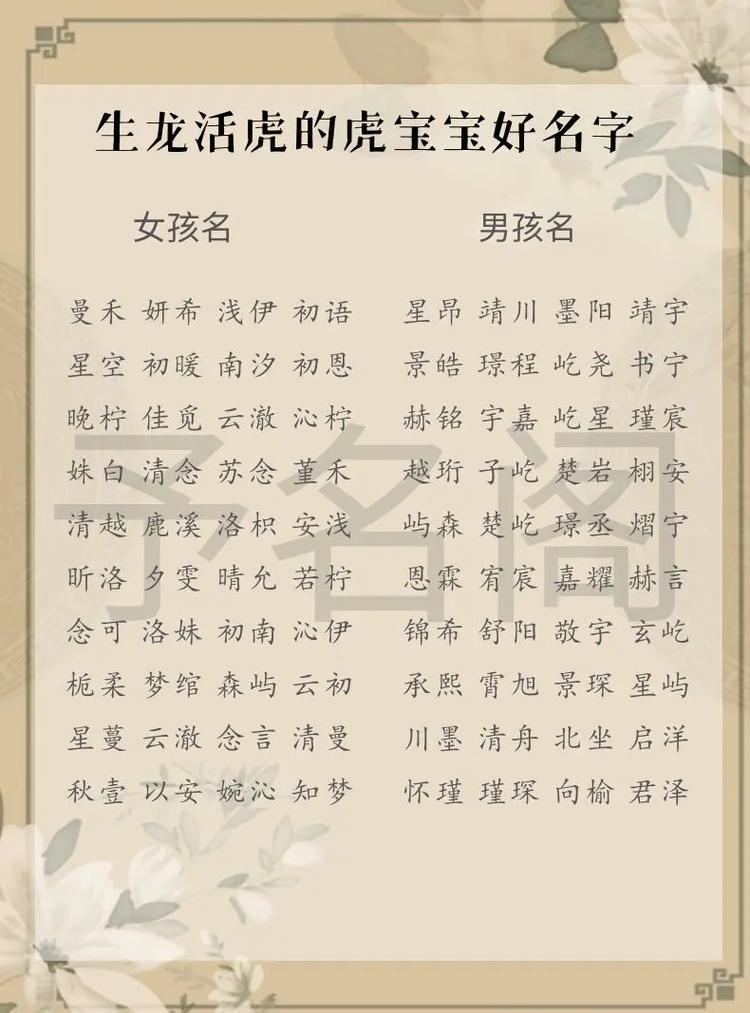 生龙活虎的虎宝宝好名字
女孩名 男孩名
曼禾 妍希 浅伊 初语 星昂 靖川 墨阳 靖宇
星空 初暖 南汐 初恩 景皓 璟程 屹尧 书宁
晚柠 佳觅 云澈 沁柠 赫铭 宇嘉 屹星 瑾宸
姝白 清念 苏念 堇禾 越珩 子屹 楚岩 栩安
清越 鹿溪 洛枳 安浅 屿森 楚屹 璟丞 熠宁
昕洛 夕雯 晴允 若柠 恩霖 宥宸 嘉耀 赫言
念可 洛妹 初南 沁伊 锦希 舒阳 敬宇 玄屹
栀柔 梦绾 森屿 云初 承熙 霄旭 景琛 星屿
星蔓 云澈 念言 清曼 川墨 清舟 北坐 启洋
秋壹 以安 婉沁 知梦 怀瑾 瑾琛 向榆 君泽
予名阁